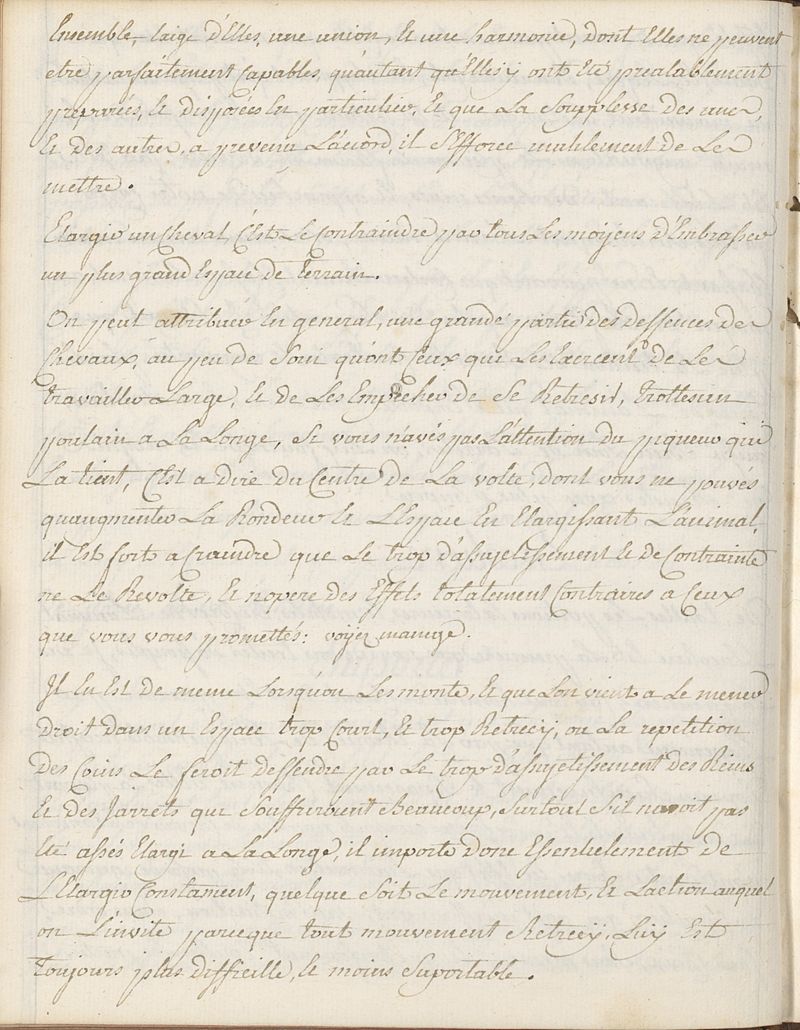 Ensemble, Exige d'Elles, une union, Et une harmonie, dont Elles ne peuvent
etre parfaitement Capables, qu'autant qu'Elles y ont Eté prealablement
preparées, Et disposées En particulier, Et que La Souplesse des unes,
Et des autres, a prevenu L'acord, il S'Efforce inutilement de Les
mettre.
Elargir un Cheval C'Est Le Contraindre par tous Les moÿens d'Embrasser
un plus grand Espace de terrain.
On peut attribuer En general, une grande partie des deffences des
Chevaux, au peu de Soin qu'ont Ceux que Les Exercent de Les
travailler Large, Et de Les Empecher de Se Retresir, trottes un
poulain a La Longe, Si vous n'avés pas L'attention du piqueur qui
La tient, C'Est a dire du Centre de La volte, dont vous ne pouvés
qu'augmenter La Rondeur Et L'Espace En Elargissant L'animal,
il Est fort a Craindre que Le trop d'assujetissement Et de Contrainte
ne Le Revolte, Et n'opere des Effets totalement Contraires a Ceux
que vous vous promettés: voÿez manege.
Il En Est de meme Lorsqu'on Les monte, Et que L'on vient a Le mener
droit dans un Espace trop Court, Et trop Retrecÿ, ou La repetition
des Coins Le feroit deffendre par Le trop d'assujetissement des Reins
Et des Jarrets qui Souffriroient beaucoup, Surtout S'il n'avoit pas
Eté assés Elargi a La Longe, il importe donc Essentielement de
L'Elargir Constament, quelque Soit Le mouvement, Et L'action auquel
on L'invite parceque tout mouvement Retrecÿ, Luÿ Est
toujours plus difficille, Et moins Suportable.